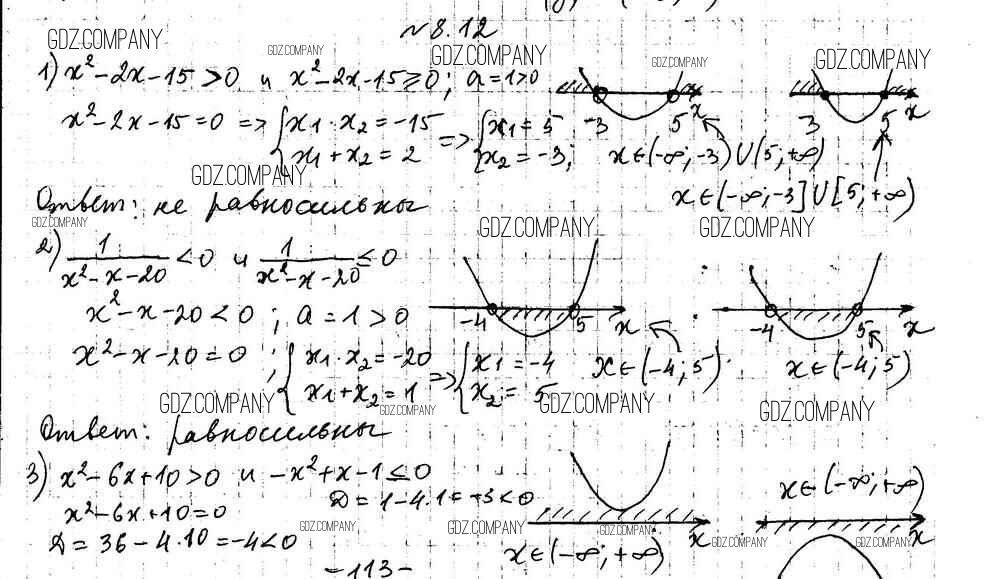 № 8.12
GDZ.COMPANY GDZ.COMPANY GDZ.COMPANY GDZ.COMPANY GDZ.COMPANY
1) x² - 2x - 15 > 0 и x² - 2x - 15 ≥ 0; a = 1 > 0
x² - 2x - 15 = 0 => { x₁ · x₂ = -15 => { x₁ = 5
x₁ + x₂ = 2 x₂ = -3;
-3 5 x 3 5 x
x ∈ (-∞; -3) ∪ (5; +∞)
x ∈ (-∞; -3] ∪ [5; +∞)
GDZ.COMPANY
Ответ: не равносильны
GDZ.COMPANY GDZ.COMPANY GDZ.COMPANY
2) 1/(x² - x - 20) < 0 и 1/(x² - x - 20) ≤ 0
x² - x - 20 < 0; a = 1 > 0
-4 5 x -4 5 x
x² - x - 20 = 0; { x₁ · x₂ = -20 => { x₁ = -4
x₁ + x₂ = 1 x₂ = 5
x ∈ (-4; 5) x ∈ (-4; 5)
GDZ.COMPANY GDZ.COMPANY GDZ.COMPANY GDZ.COMPANY
Ответ: равносильны
3) x² - 6x + 10 > 0 и -x² + x - 1 ≤ 0
D = 1 - 4·1 = -3 < 0
x² - 6x + 10 = 0
D = 36 - 4·10 = -4 < 0
x ∈ (-∞; +∞) x
x ∈ (-∞; +∞) x
GDZ.COMPANY GDZ.COMPANY GDZ.COMPANY GDZ.COMPANY GDZ.COMPANY
- 113 -